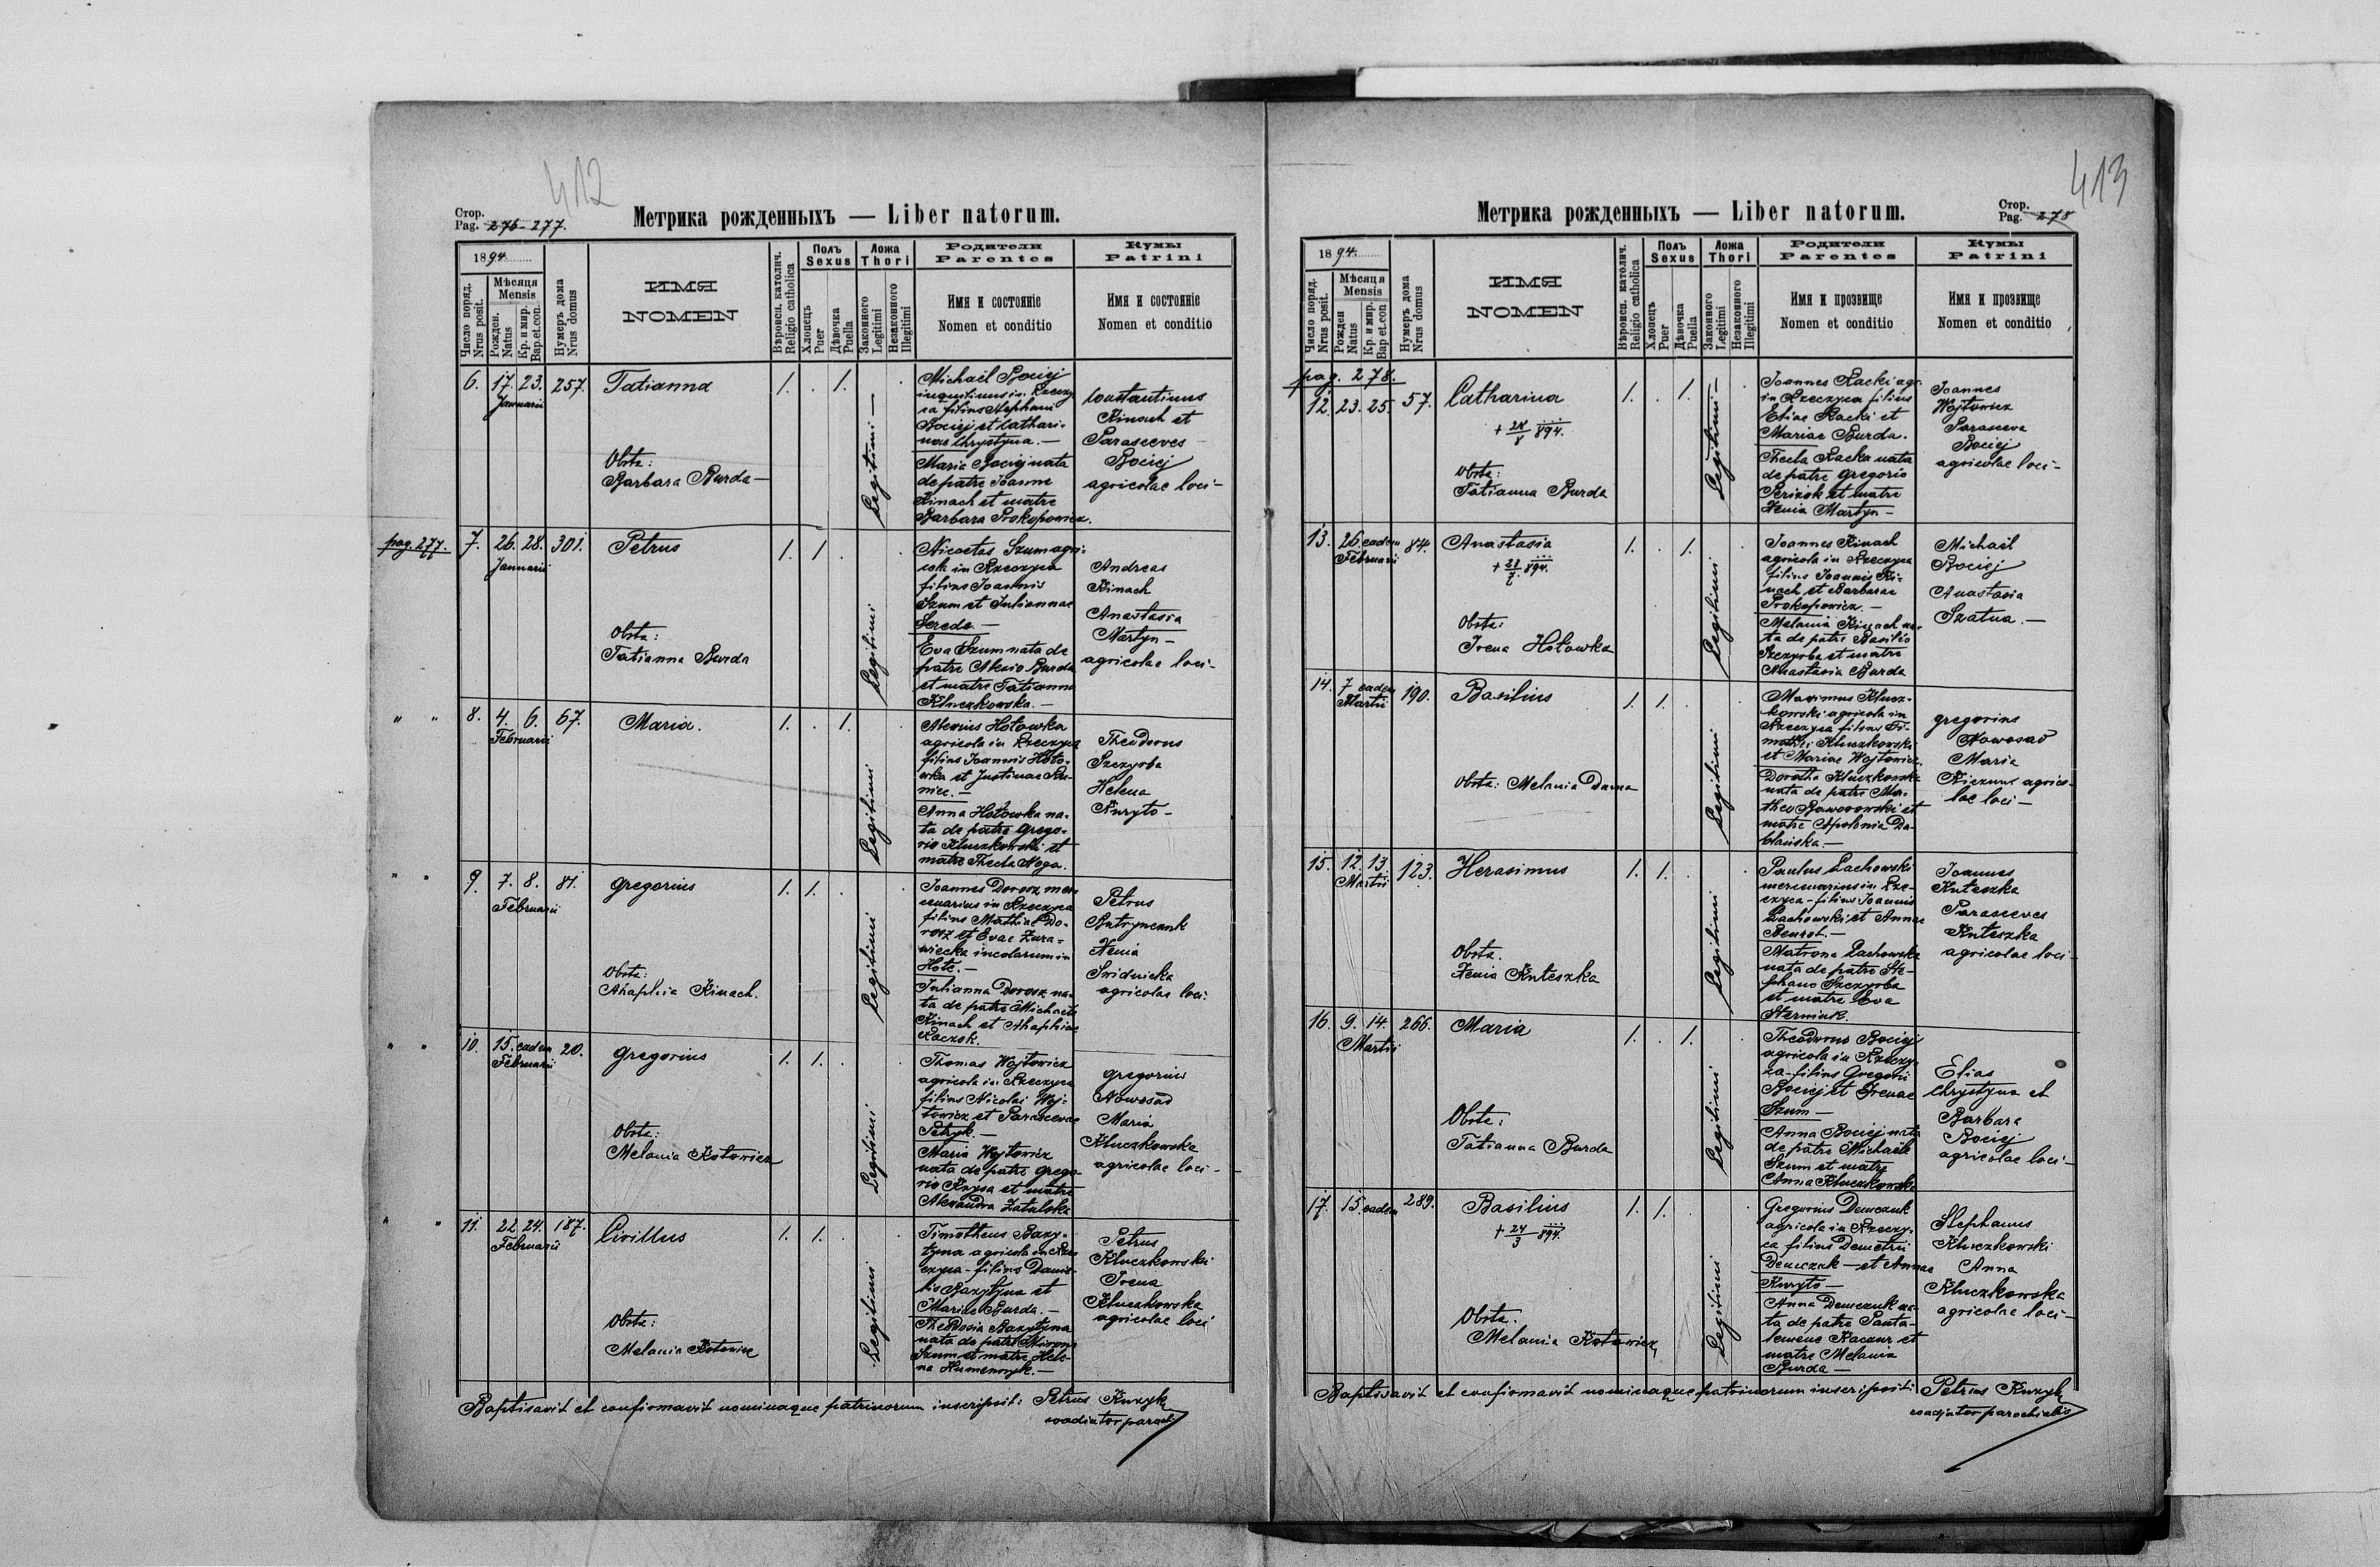 412
Стор.
Pag. 276-277.
Метрика рожденныхъ — Liber natorum.
1894.
Число поряд.
Nrus posit.
Мѣсяця
Mensis
Рожден.
Natus
Кр. и мир.
Bap. et con.
Нумеръ дома
Nrus domus
ИМЯ
NOMEN
Вѣроисп. католич.
Religio catholica
Полъ
Sexus
Хлопецъ
Puer
Дѣвочка
Puella
Ложа
Thori
Законного
Legitimi
Незаконного
Illegitimi
Родители
Parentes
Имя и состоянїе
Nomen et conditio
Кумы
Patrini
Имя и состоянїе
Nomen et conditio
6. 17. 23. 257. Tatianna 1. . 1. .
Januarii
Obstz:
Barbara Burda —
Legitimi —
Michaël Bociej
inquilinus in Rzeczy
ca filius Stephani
Bociej et Cathari-
nae Chrystyna. —
Maria Bociej nata
de patre Joanne
Kinach et matre
Barbara Prokopowicz.
Constantinus
Kinach et
Parasceves
Bociej
agricolae loci -
pag. 277. 7. 26. 28. 301. Petrus 1. 1. . .
Januarii
Obstz:
Tatianna Burda
Legitimi
Nicetas Szum agri-
cola in Rzeczyca
filius Joannis
Szum et Juliannae
Sereda. —
Eva Szum nata de
patre Alexio Burda
et matre Tatianna
Kluczkowska. —
Andreas
Kinach
Anastasia
Martyn —
agricolae loci -
" " 8. 4. 6. 67. Maria. 1. . 1.
Februarii
Legitimi
Alexius Hołowka
agricola in Rzeczyca
filius Joannis Hoło-
wka et Justinae
Anna Hołowka na-
ta de patre Grego-
rio Kluczkowski et
matre Thecla Noga.
Theodorus
Szczyrba
Helena
Kuryło -
" " 9. 7. 8. 81. Gregorius 1. 1. . .
Februarii
Obstz:
Ahaphia Kinach.
Legitimi
Joannes Dorosz mer-
cenarius in Rzeczyca
filius Mathiae Do-
rosz et Evae Zura-
wiecka incolarum in
Julianna Dorosz na-
ta de patre Michaele
Kinach et Ahaphia
Raczok.
Petrus
Antrynczuk
Xenia
Svidnicka
agricolae loci.
" " 10. 15. eadem 20. Gregorius 1. 1. .
Februarii
Obstz:
Melania Kotowicz
Legitimi
Thomas Wojtowicz
agricola in Rzeczyca
filius Nicolai Woj-
towicz et Parascevae
Petryk. —
Maria Wojtowicz
nata de patre Grego-
rio Krysa et matre
Alexandra Zatulska
Gregorius
Nowosad
Maria
Kluczkowska
agricolae loci -
" " 11. 22 24. 187. Cirillus 1. 1. .
Februarii
Obstz:
Melania Kotowicz
Legitimi
Timotheus Bazy-
tyna agricola in Rze-
czyca - filius Danie-
lis Bazytyna et
Mariae Burda. —
Theodosia Bazytyna
nata de patre Mirone
Szum et matre Hele-
na Humennyk. —
Petrus
Kluczkowski
Irena
Kluczkowska
agricolae loci
Baptisavit et confirmavit nominaque patrinorum inscripsit: Petrus Kuzyk
coadjutor paroch.
413
Метрика рожденныхъ — Liber natorum.
Стор.
Pag. 278
1894.
Число поряд.
Nrus posit.
Мѣсяця
Mensis
Рожден
Natus
Кр. и мир.
Bap et con
Нумеръ дома
Nrus domus
ИМЯ
NOMEN
Вѣроисп. католич.
Religio catholica
Полъ
Sexus
Хлопецъ
Puer
Дѣвочка
Puella
Ложа
Thori
Законного
Legitimi
Незаконного
Illegitimi
Родители
Parentes
Имя и прозвище
Nomen et conditio
Кумы
Patrini
Имя и прозвище
Nomen et conditio
pag. 278.
12. 23. 25. 57. Catharina 1. . 1. .
+ 28/8 894.
Obstz:
Tatianna Burda
Legitimi —
Joannes Racki agr.
in Rzeczyca filius
Eliae Racki et
Mariae Burda.
Thecla Racka nata
de patre Gregorio
Perizok et matre
Xenia Martyn —
Joannes
Wojtowicz
Parasceva
Bociej
agricolae loci -
13. 26 eadem 84. Anastasia 1. . 1. .
Februarii
+ 28/7. 894.
Obstz:
Irena Hołowka
Legitimi
Joannes Kinach
agricola in Rzeczyca
filius Joannis Ki-
nach et Barbarae
Prokopowicz. —
Melania Kinach na-
ta de patre Basilio
Szczyrba et matre
Anastasia Burda
Michaël
Bociej
Anastasia
Szatna. —
14. 7 eadem 190. Basilius 1. 1. . .
Martii
Obstz: Melania Danna
Legitimi
Maximus Klucz-
kowski agricola in
Rzeczyca filius Ti-
mothei Kluczkowski
et Mariae Wojtowicz.
Dorothea Kluczkowska
nata de patre Ma-
theo Baworowski et
matre Apolonia Da-
blańska. —
Gregorius
Nowosad
Maria
Kiczuna agrico-
lae loci —
15. 12. 13. 123. Herasimus 1. 1. . .
Martii
Obstz.
Xenia Kuteszka
Legitimi
Paulus Lachowski
mercenarius in Rze-
czyca - filius Joannis
Lachowski et Annae
Matrona Lachowska
nata de patre Ste-
phano Szczyrba
et matre Eva
Sterniuk.
Joannes
Kuteszka
Parasceves
Kuteszka
agricolae loci -
16. 9. 14. 266. Maria 1. . 1. .
Martii
Obstz:
Tatianna Burda
Legitimi
Theodorus Bociej
agricola in Rzeczy-
ca - filius Gregorii
Bociej et Irenae
Szum —
Anna Bociej nata
de patre Michaele
Szum et matre
Anna Kluczkowska
Elias
Chrystyna et
Barbara
Bociej
agricolae loci —
17. 15. eadem 289. Basilius 1. 1. . .
+ 24/3 894.
Obstz.
Melania Kotowicz
Legitimi
Gregorius Demczuk
agricola in Rzeczy-
ca filius Demetrii
Demczuk — et Annae
Kuryło —
Anna Demczuk na-
ta de patre Panta-
lemone Kaczur et
matre Melania
Burda —
Stephanus
Kluczkowski
Anna
Kluczkowska
agricolae loci —
Baptisavit et confirmavit nominaque patrinorum inscripsit: Petrus Kuzyk
coadjutor parochialis